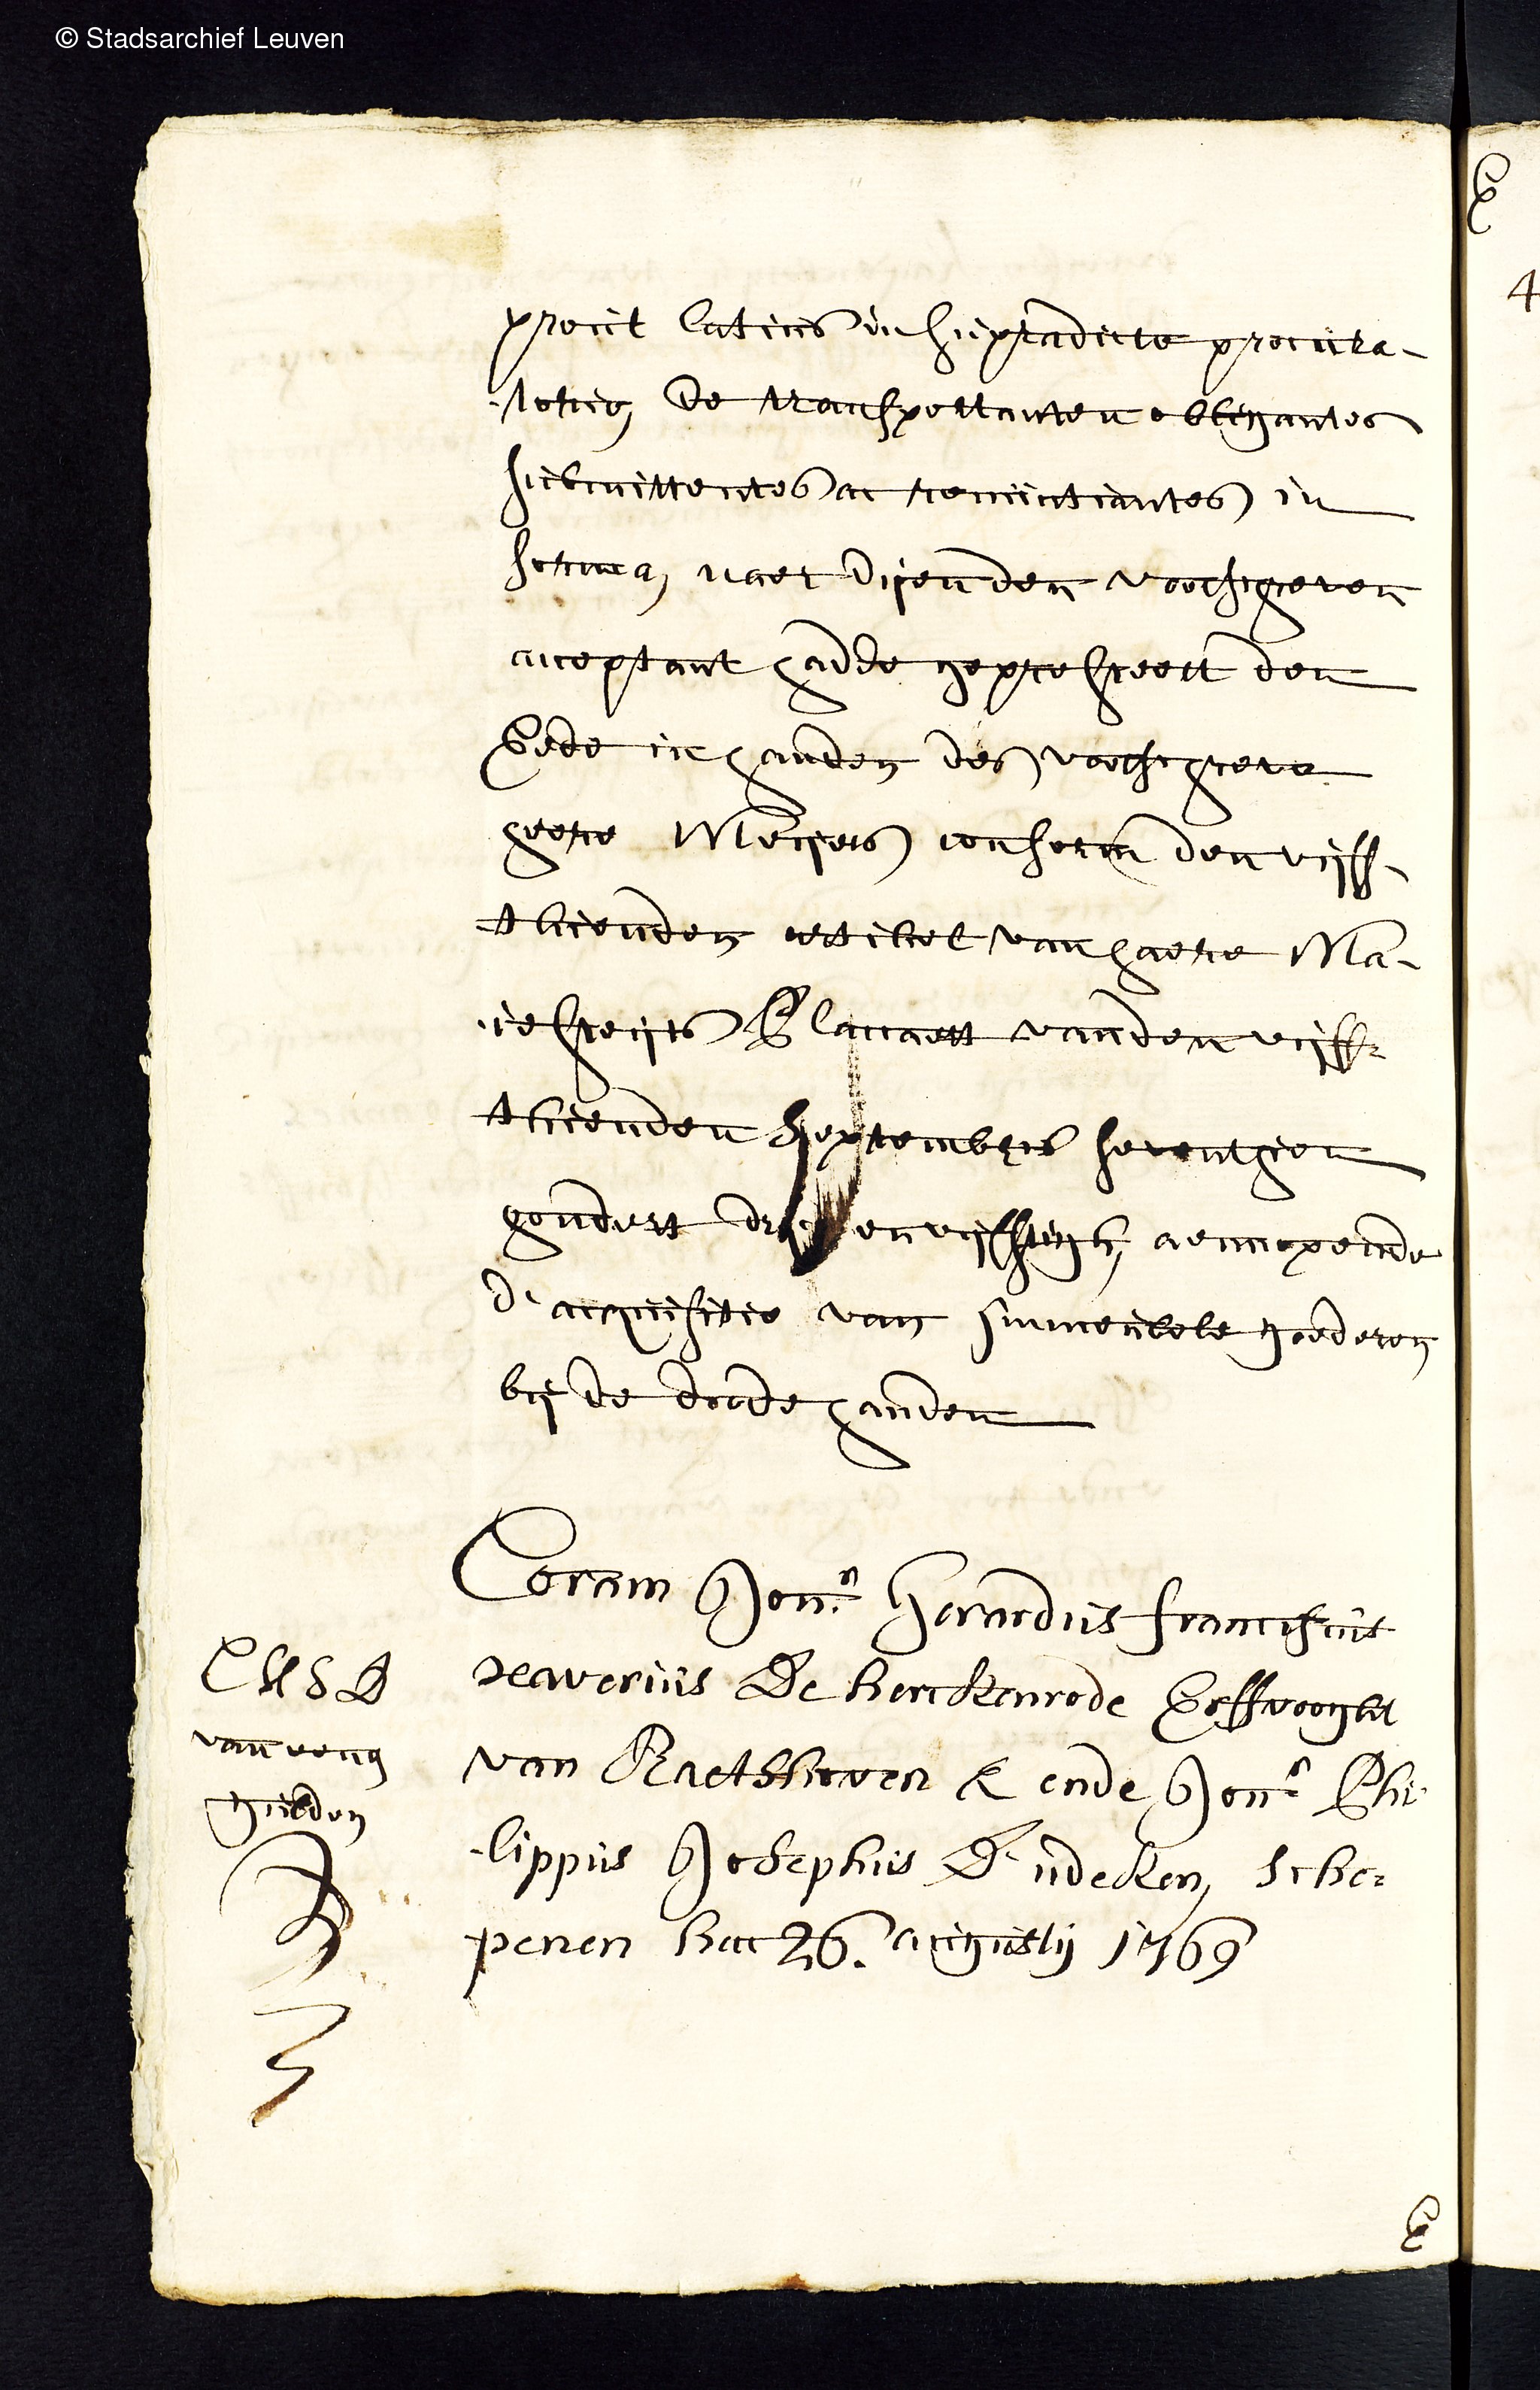 © Stadsarchief Leuven
prout latius in supradicte procura-
-torien, de transportanten obligantes
submittentes ac renuntiantes in
forma, naer dijen den voorschreven
acceptant hadde gepresteert den
Eede in handen des voorschreve
heere Meijers conform den vijff-
thienden artikel van haere Ma-
-iesteijts Placcaert van den vijff-
thienden September seventhien
hondert dry en vijfftigh, aengaende
d'acquisitie van immeubele goederen
bij de doode handen
Coram Jonr. Gerardus franciscus
xaverius De herckenrode Erffvooght
van Raetshoven & ende Jonr. Phi-
-lippus Josephus D'udeken, Sche-
penen hac 26. augusti 1769
van eene
gulden
4